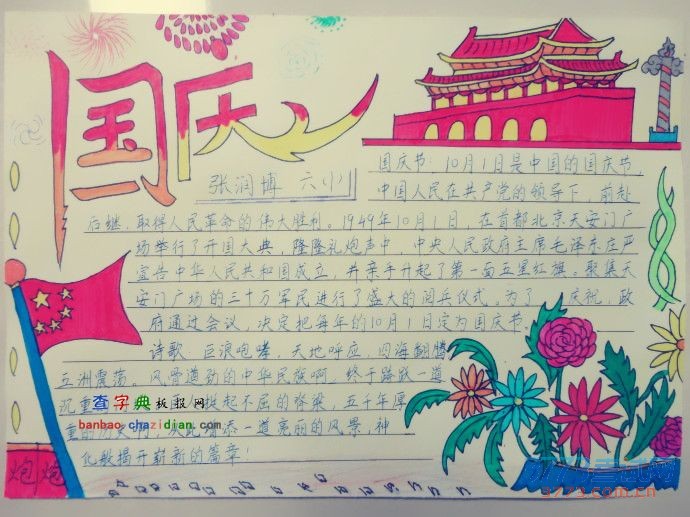 国庆
张润博 六(小)
国庆节：10月1日是中国的国庆节，
中国人民在共产党的领导下，前赴
后继，取得人民革命的伟大胜利。1949年10月1日，在首都北京天安门广
场举行了开国大典，隆隆礼炮声中，中央人民政府主席毛泽东庄严
宣告中华人民共和国成立，并亲手升起了第一面五星红旗。聚集天
安门广场的三十万军民进行了盛大的阅兵仪式。为了 庆祝，政
府通过会议，决定把每年的10月1日定为国庆节。
诗歌 巨浪咆哮，天地呼应，四海翻腾
五洲震荡。风骨遒劲的中华民族啊，终于踏破一道
沉重 挺起不屈的脊梁，五千年厚
查字典板报网
重的历史啊，从此增添一道亮丽的风景，神
banbao.chazidian.com
化般揭开崭新的篇章！
炮 炮